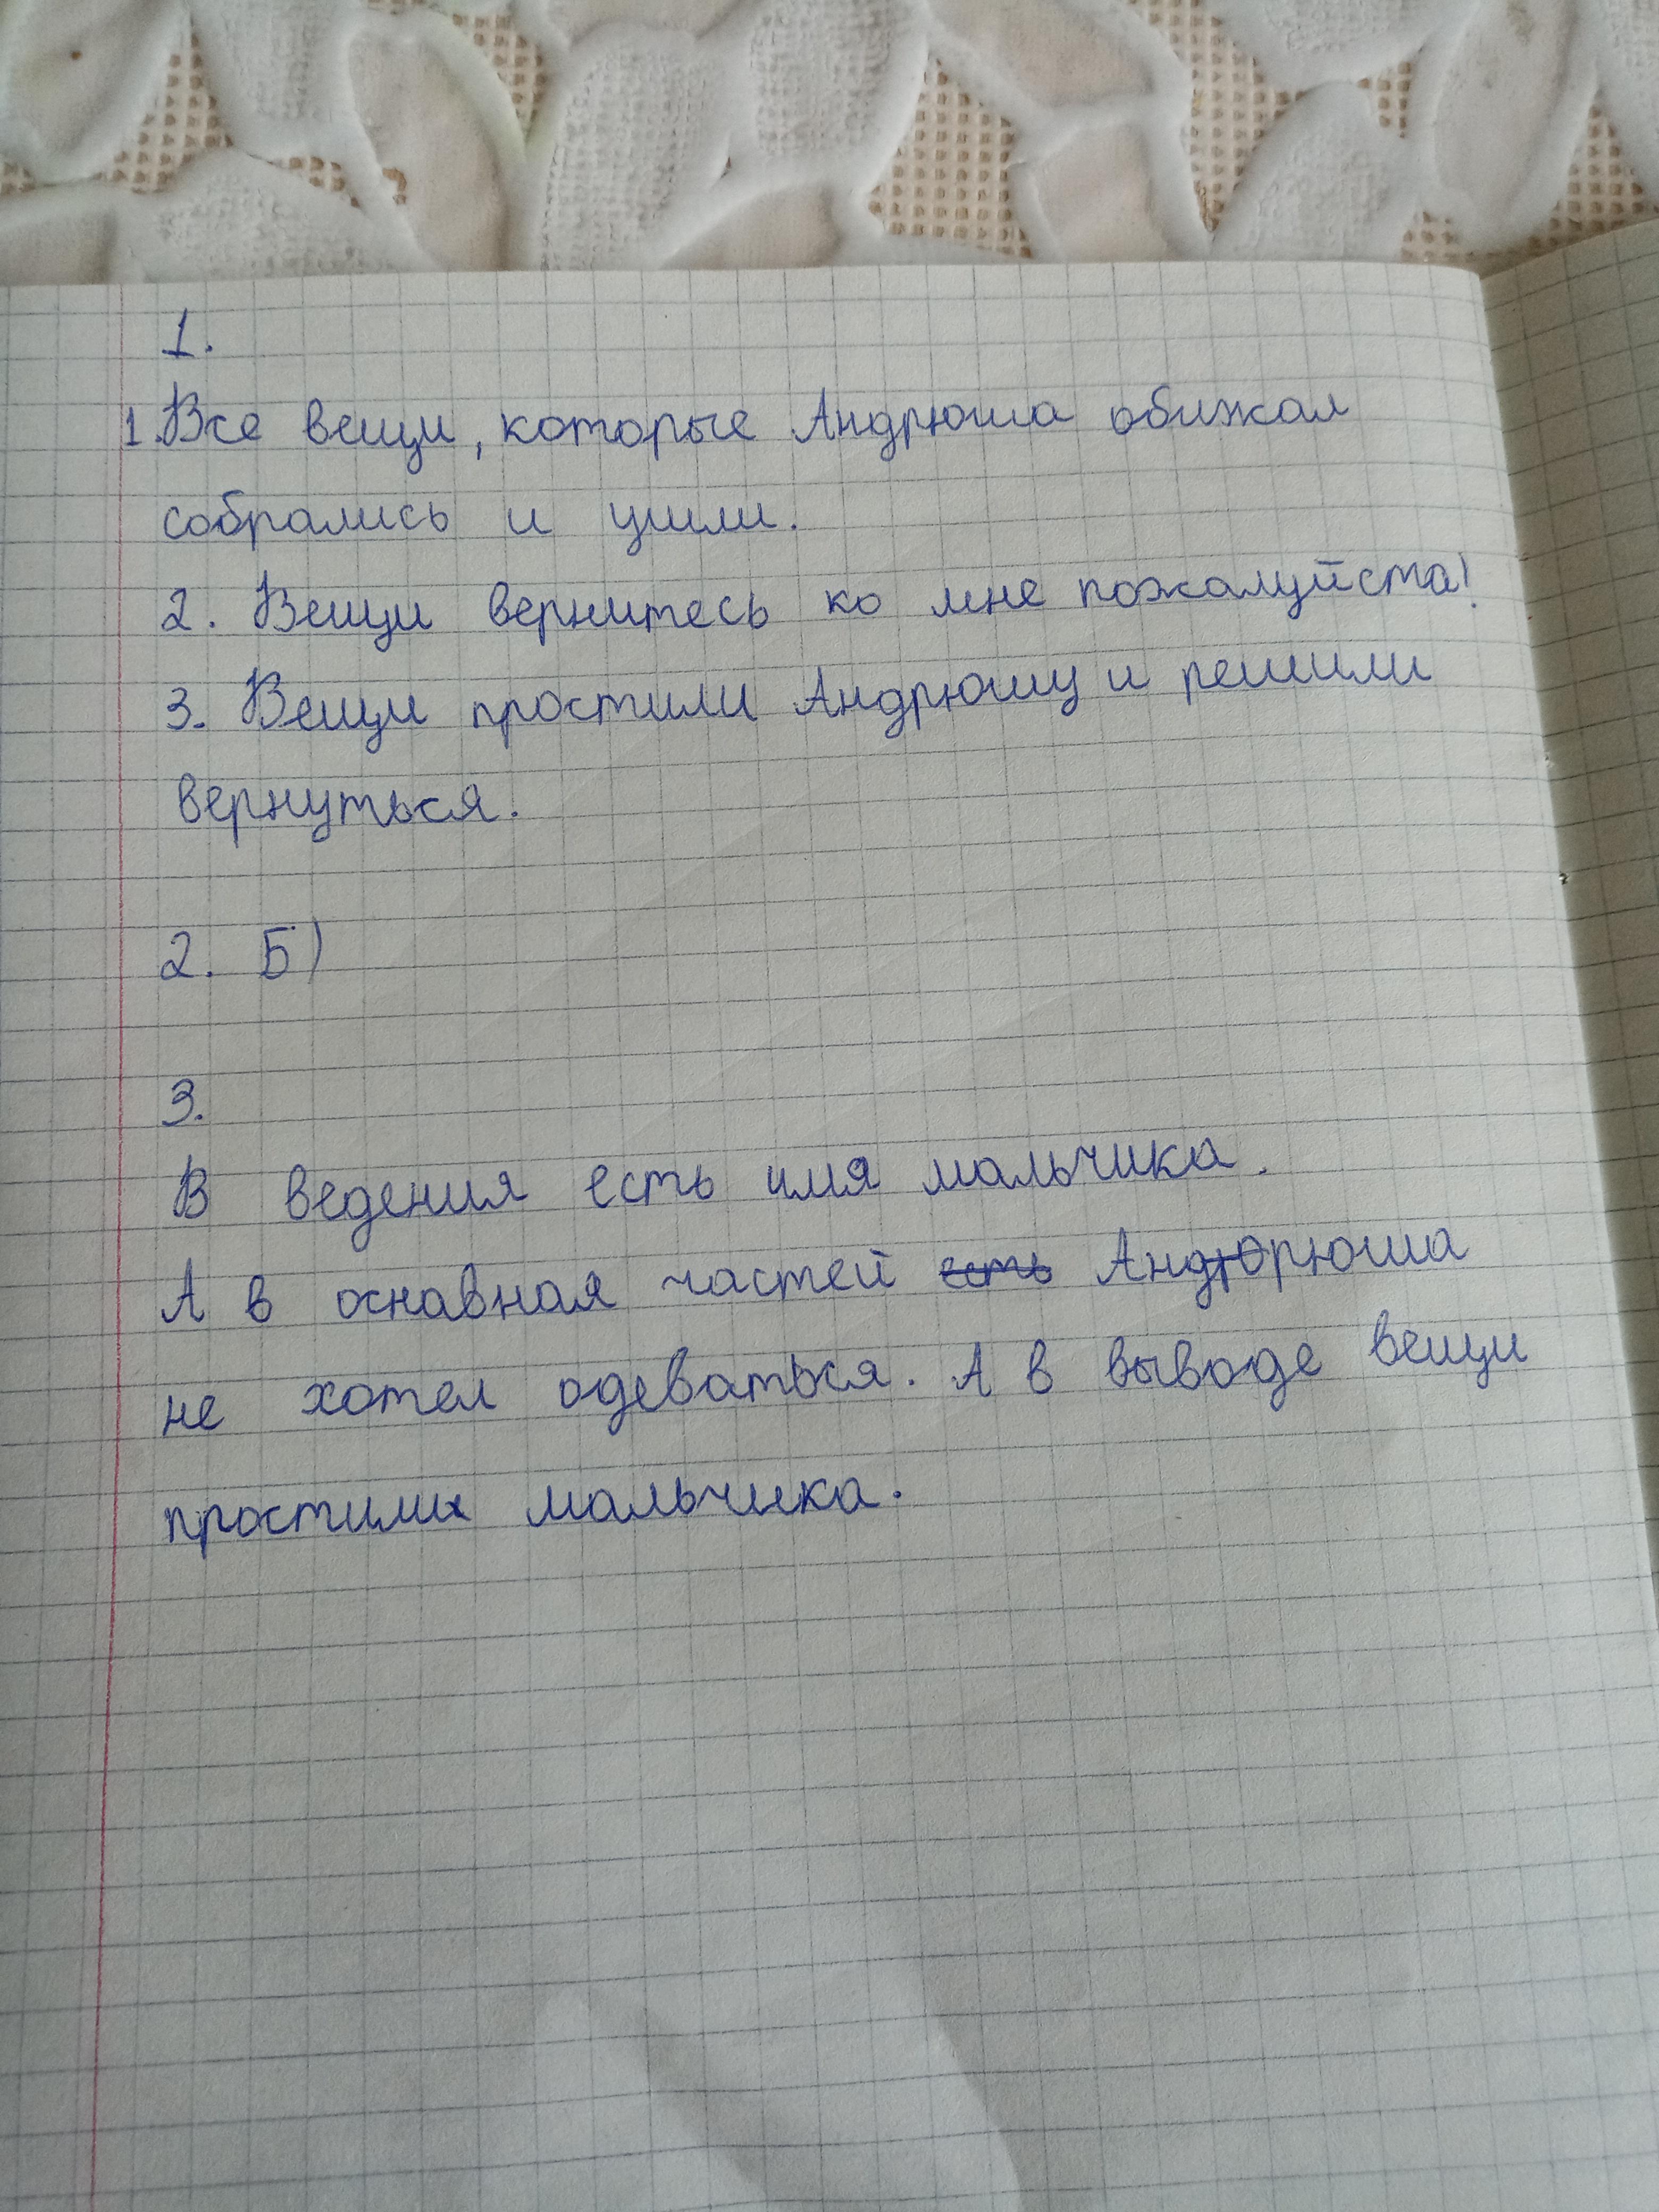 1.
1. Все вещи, которые Андрюша обижал
собрались и ушли.
2. Вещи вернитесь ко мне пожалуйста!
3. Вещи простили Андрюшу и решили
вернуться.
2. Б)
3.
В ведения есть имя мальчика.
А в оснавная частей есть Андрюша
не хотел одеваться. А в выводе вещи
простили мальчика.